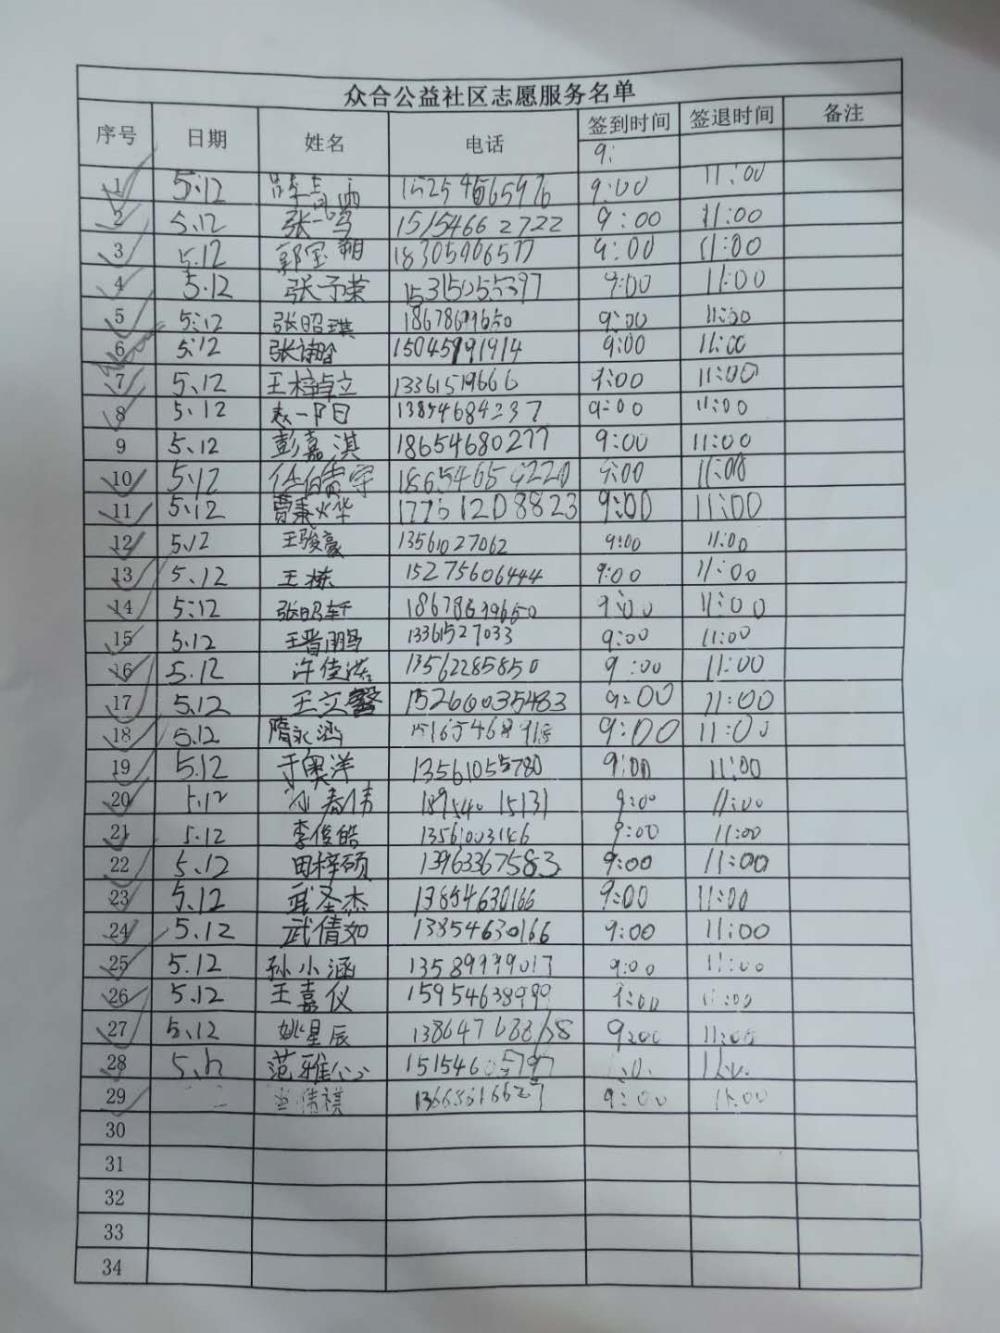 众合公益社区志愿服务名单
序号 日期 姓名 电话 签到时间 签退时间 备注
9:
1 5:12 9:00 11:00
2 5.12 张一鸣 15154662722 9:00 11:00
3 5.12 郭宝翔 18305406577 9:00 11:00
4 5.12 张予荣 15315055397 9:00 11:00
5 5:12 张昭琪 18678699650 9:00 11:00
6 5:12 张 15045991914 9:00 11:00
7 5.12 王梓卓立 13361519666 9:00 11:00
8 5.12 赵一阳 13854684237 9:00 11:00
9 5.12 彭嘉淇 18654680277 9:00 11:00
10 5.12 任 18654659220 9:00 11:00
11 5:12 贾 17751208823 9:00 11:00
12 5.12 王骏豪 13561027062 9:00 11:00
13 5.12 王栋 15275606444 9:00 11:00
14 5:12 张昭轩 18678699650 9:00 11:00
15 5.12 王晋鹏 13361527033 9:00 11:00
16 5.12 许佳 13562285850 9:00 11:00
17 5.12 王文馨 152600035483 9:00 11:00
18 5.12 隋永涵 9:00 11:00
19 5.12 于奥洋 13561055780 9:00 11:00
20 5.12 春伟 15131 9:00 11:00
21 5.12 李俊皓 9:00 11:00
22 5.12 田梓硕 13963367583 9:00 11:00
23 5.12 武圣杰 13854630166 9:00 11:00
24 5.12 武倩如 13854630166 9:00 11:00
25 5.12 孙小涵 13589999017 9:00 11:00
26 5.12 王嘉仪 15954638999 9:00 11:00
27 5.12 姚星辰 9:00 11:00
28 范雅
29 祺 9:00 11:00
30
31
32
33
34